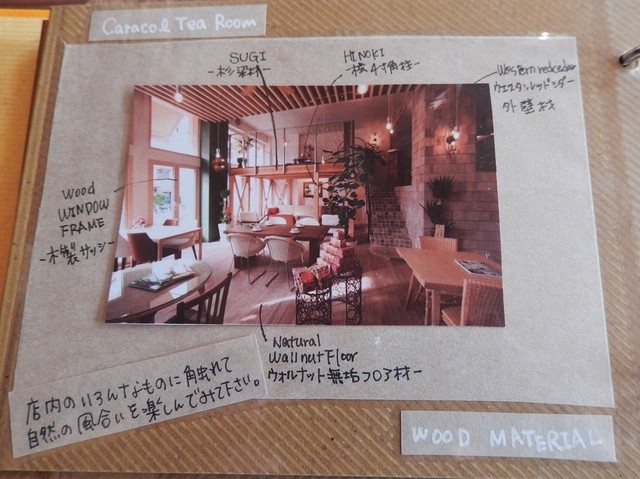 Caracol Tea Room
SUGI
-杉梁材-
HINOKI
-桧4寸角材-
Western redcedar
ウエスタンレッドシダー
外壁材
wood
WINDOW
FRAME
-木製サッシ-
Natural
Wallnut Floor
ウォルナット無垢フロア材-
店内のいろんなものに触れて
自然の風合いを楽しんでみて下さい。
WOOD MATERIAL